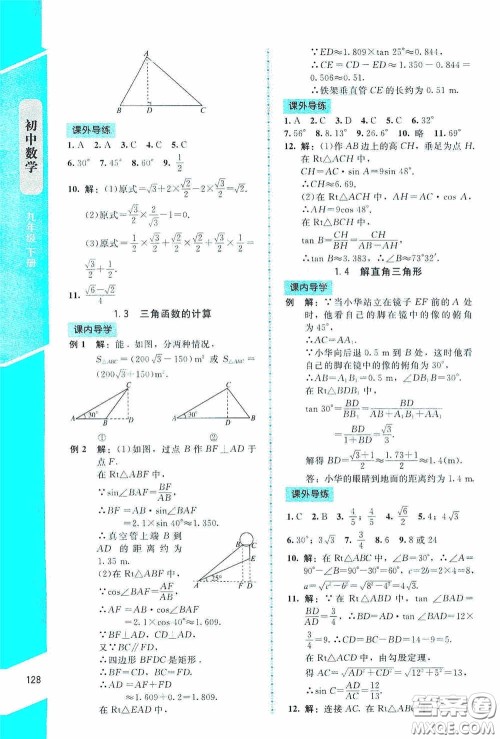 初中数学
九年级 下册
128
A
B D C
课外导练
1. A 2. C 3. A 4. C 5. C
6. 30° 7. 45° 8. 60° 9. 1/2
10. 解：(1)原式=√3+2×√2/2-2×√3/2=√2.
(2)原式=√3/2×√3/2-√2/2×√2/2+1/2=
√3/4+1/2.
11. √6/2
1.3 三角函数的计算
课内导学
例 1 解：能。如图，分两种情况，
S△ABC=(200√3-150)m² 或 S△ABC=
(200√3+150)m².
A 30° C B
A 30° B
① ②
例 2 解：(1)如图，过点 B 作 BF⊥AD 于
点 F.
在 Rt△ABF 中，
∵sin∠BAF=BF/AB,
∴BF=AB·sin∠BAF
=2.1×sin 40°≈1.350.
∴真空管上端 B 到
AD 的距离约为
1.35 m.
(2)在 Rt△ABF 中，
∵cos∠BAF=AF/AB,
∴AF=AB·cos∠BAF
=2.1×cos 40°≈1.609.
∵BF⊥AD, CD⊥AD,
又∵BC∥FD,
∴四边形 BFDC 是矩形.
∴BF=CD, BC=FD.
∴AD=AF+FD
≈1.609+0.2=1.809.
在 Rt△EAD 中，
∵ED≈1.809×tan 25°≈0.844,
∴CE=CD-ED≈1.350-0.844
=0.506≈0.51.
∴铁架垂直管 CE 的长约为 0.51 m.
课外导练
1. A 2. C 3. D 4. C 5. C 6. 32°
7. 56° 8. 13.1 9. 26.6° 10. 略 11. 69°
12. 解：(1)作 AB 边上的高 CH，垂足为点 H.
在 Rt△ACH 中，
CH=AC·sin A=9sin 48°.
∴CH≈6.69.
(2)在 Rt△ACH 中，AH=AC·cos A,
∴AH=9cos 48°.
∴在 Rt△BCH 中，
tan B=CH/BH=CH/(AB-AH)=9sin 48°/(8-9cos 48°).
∴∠B≈73°32′.
1.4 解直角三角形
课内导学
例 解：∵当小华站立在镜子 EF 前的 A 处
时，他看自己的脚在镜中的像的俯角
为 45°,
∴AC=BC=AA₁=1.
∵小华向后退 0.5 m 到 B 处，这时他看
自己的脚在镜中的像的俯角为 30°,
∴AB=A₁B₁=0.5 m, ∠DB₁B=30°.
在 Rt△BDB₁ 中，
tan 30°=BD/BB₁=BD/(AB+A₁B₁+AA₁)=
BD/(1+BD)=√3/3.
解得 BD=(√3+1)/2≈(1.73+1)/2≈1.4.
答：小华的眼睛到地面的距离约为 1.4 m.
课外导练
1. C 2. B 3. 4/5 4. √6/2 5. 4√3
6. 30°; 3√3 7. 3/4 8. 6 9. 8 或 24
10. 解：在 Rt△ABC 中，∵∠C=90°, ∴∠A=
90°-∠B=90°-30°=60°. c=2b=8.
a=√(c²-b²)=√(8²-4²)=4√3.
11. 解：在 Rt△ABD 中，∵tan∠BAD=BD/AD=
3/4, ∴BD=12×3/4=9.
∴CD=BC-BD=14-9=5.
在 Rt△ADC 中，由勾股定理，
得 AC=√(AD²+CD²)=√(12²+5²)=13,
∴sin C=AD/AC=12/13.
12. 解：连接 AC. 在 Rt
答案圈
MXQE.COM